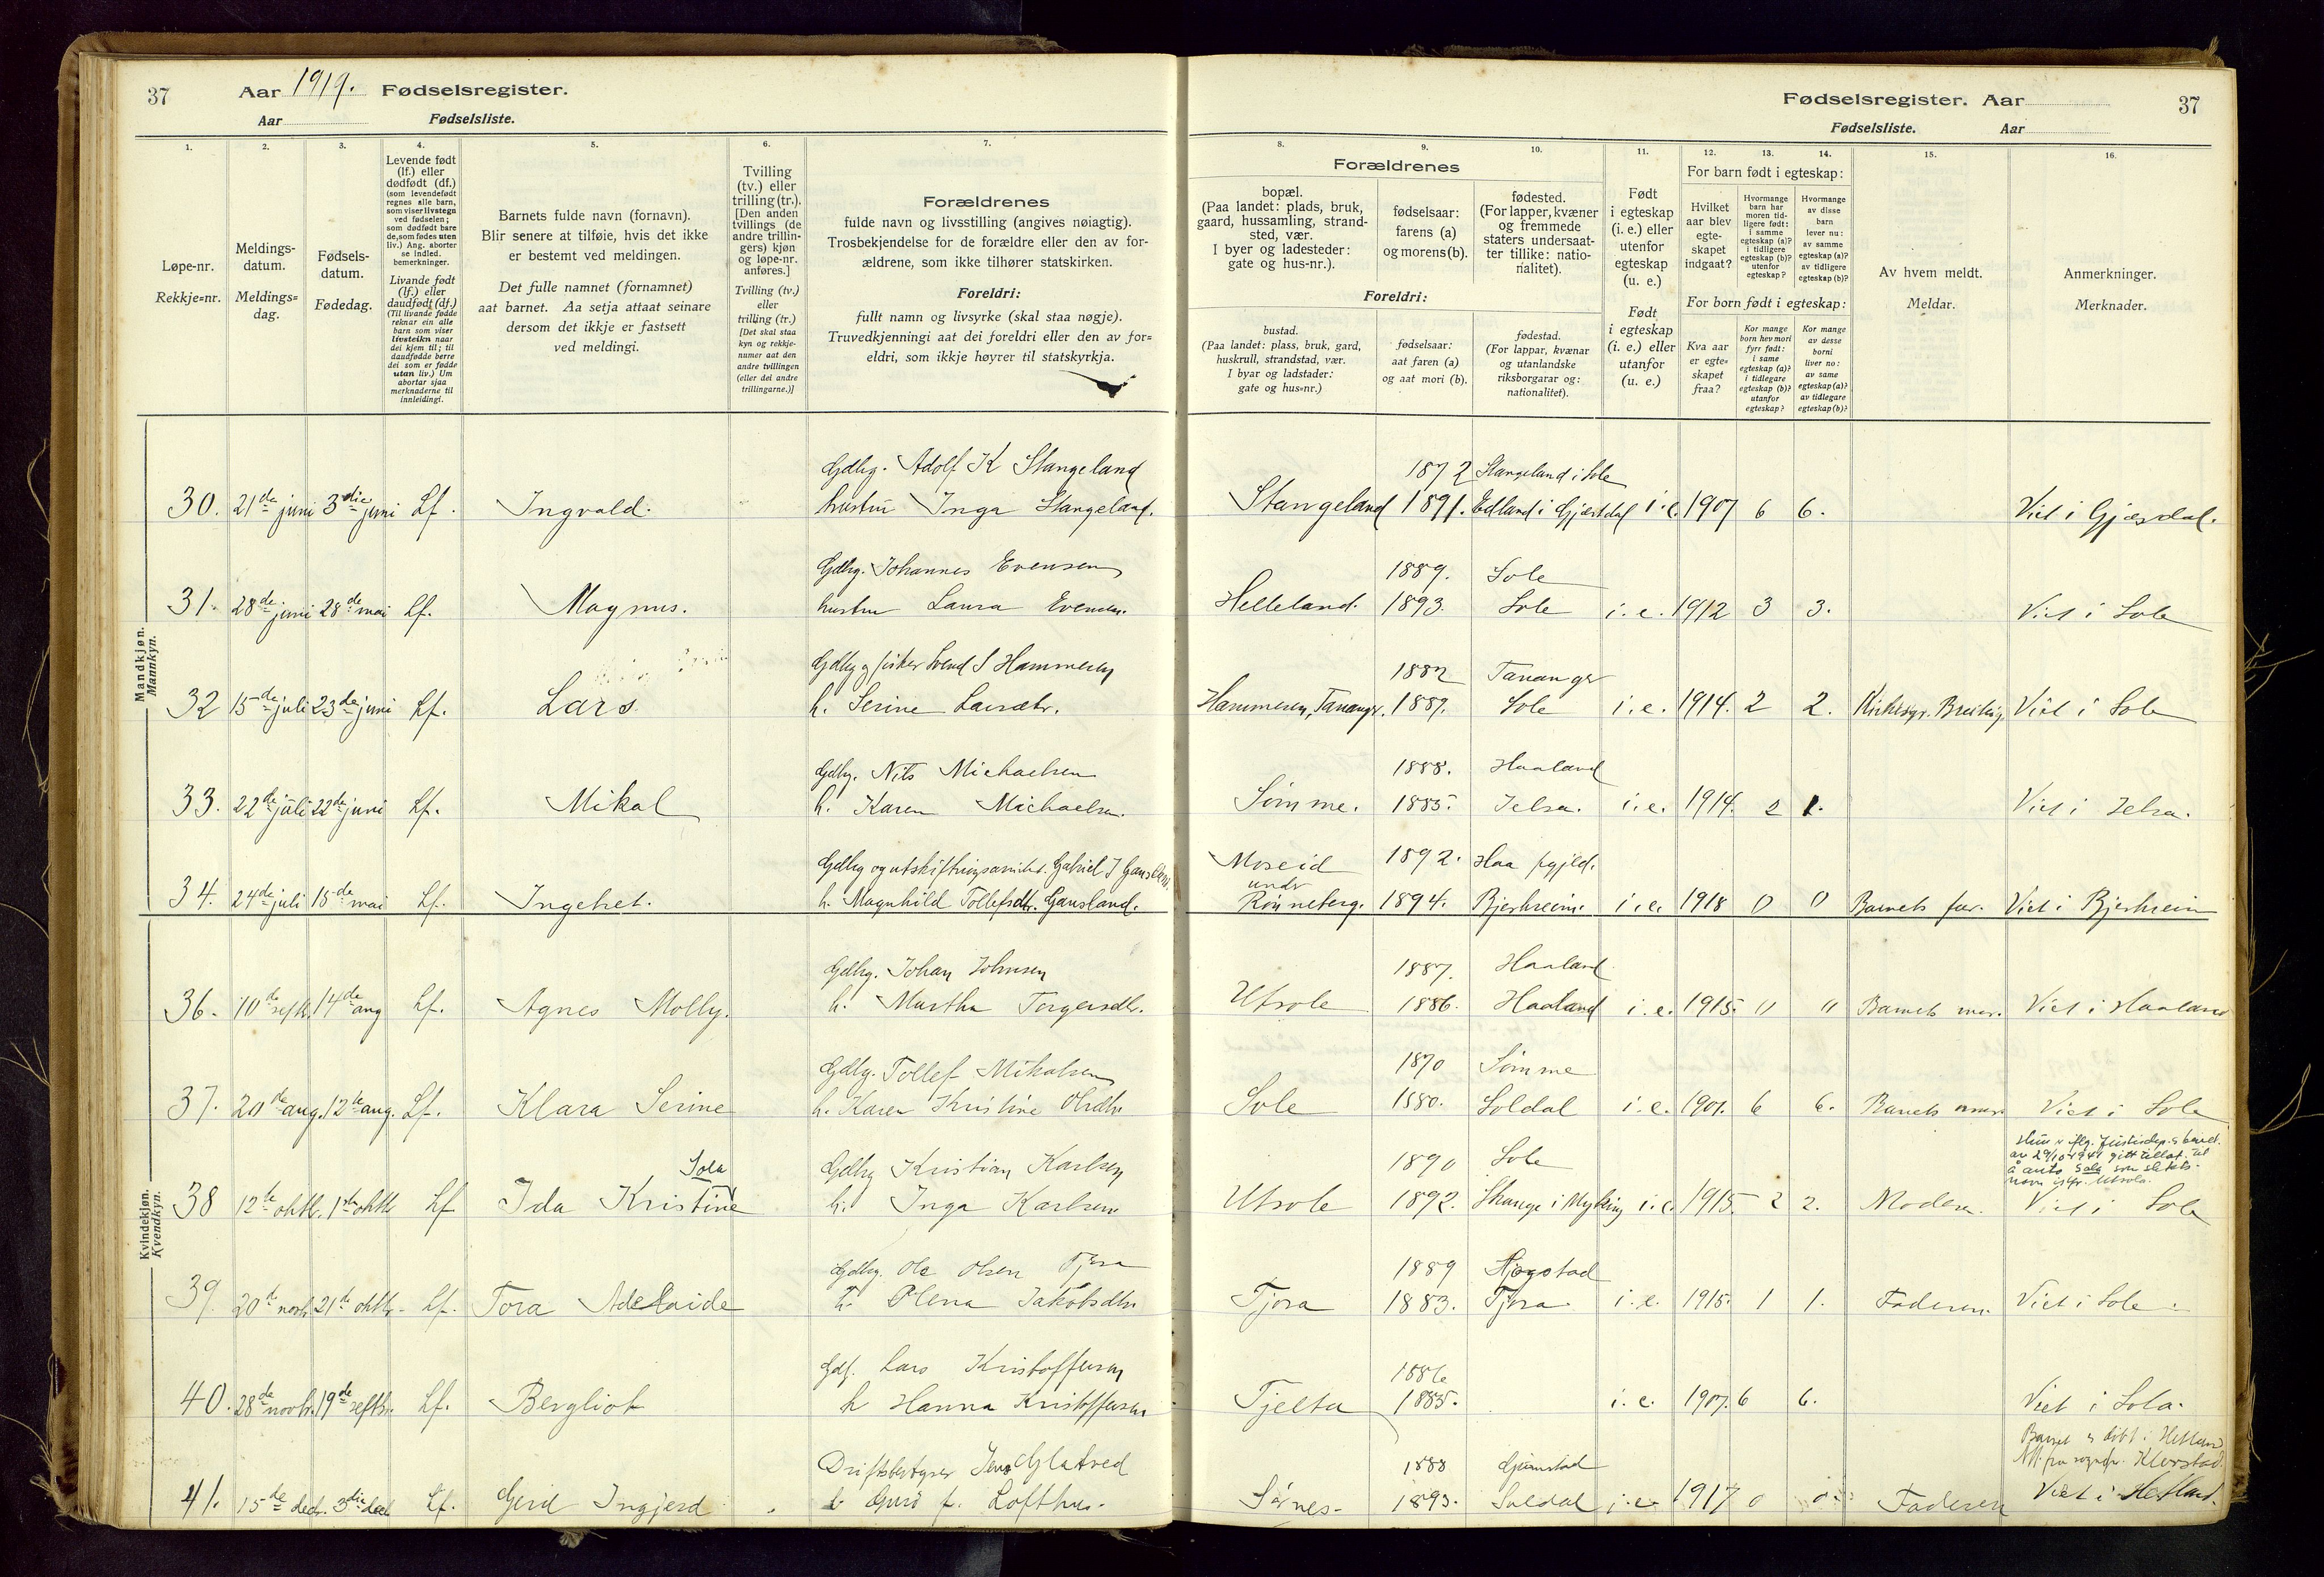 37 Aar 1919. Fødselsregister.
Aar Fødselsliste.
Fødselsregister. Aar 37
Fødselsliste. Aar
1.
Løpe-nr.
Rekkje=nr.
2.
Meldings-
datum.
Meldings=
dag.
3.
Fødsels-
datum.
Fødedag.
4.
Levende født
(lf.) eller
dødfødt (df.)
(som levendefødt
regnes alle barn,
som viser livstegn
ved fødselen;
som dødfødt bare
de, som fødes uten
liv.) Ang. aborter
se indled.
bemerkninger.
Livande født
(lf.) eller
daudfødt (df.)
(Til livande fødde
reknar ein alle
barn som viser
livsteikn naar
dei kjem til; til
daudfødde berre
dei som er fødde
utan liv.) Um
abortar sjaa
merknaderne til
innleidingi.
5.
Barnets fulde navn (fornavn).
Blir senere at tilføie, hvis det ikke
er bestemt ved meldingen.
Det fulle namnet (fornamnet)
aat barnet. Aa setja attaat seinare
dersom det ikkje er fastsett
ved meldingi.
6.
Tvilling
(tv.) eller
trilling (tr.).
[Den anden
tvillings (de
andre trillin-
gers) kjøn
og løpe-nr.
anføres.]
Tvilling (tv.)
eller
trilling (tr.)
[Det skal staa
kyn og rekkje-
numer aat den
andre tvillingen
(eller dei andre
trillingarne.)]
7.
Forældrenes
fulde navn og livsstilling (angives nøiagtig).
Trosbekjendelse for de forældre eller den av for-
ældrene, som ikke tilhører statskirken.
Foreldri:
fullt namn og livsyrke (skal staa nøgje).
Truvedkjenningi aat dei foreldri eller den av for=
eldri, som ikkje høyrer til statskyrkja.
Forældrenes
8.
bopæl.
(Paa landet: plads, bruk,
gaard, hussamling, strand-
sted, vær.
I byer og ladesteder:
gate og hus-nr.).
9.
fødselsaar:
farens (a)
og morens (b).
10.
fødested.
(For lapper, kvæner
og fremmede
staters undersaat-
ter tillike: natio-
nalitet).
Foreldri:
bustad.
(Paa landet: plass, bruk, gard,
huskrull, strandstad, vær.
I byar og ladstader:
gate og hus=nr.)
fødselsaar:
aat faren (a)
og aat mori (b).
fødestad.
(For lappar, kvænar
og utanlandske
riksborgarar og:
nationalitet).
11.
Født
i egteskap
(i. e.) eller
utenfor
egteskap
(u. e.)
Født
i egteskap
(i. e.) eller
utanfor
(u. e.)
12. 13. 14.
For barn født i egteskap:
Hvilket
aar blev
egte-
skapet
indgaat?
Hvormange
barn har
moren tid-
ligere født:
i samme
egteskap (a)?
i tidligere
egteskap (b)?
utenfor
egteskap?
Hvormange
av disse
barn
lever nu:
av samme
egteskap (a)?
av tidligere
egteskap (b)?
For born født i egteskap:
Kva aar
er egte=
skapet
fraa?
Kor mange
born hev mori
fyrr født:
i same
egteskap (a)?
i tidlegare
egteskap (b)?
utanfor
egteskap?
Kor mange
av desse
borni
liver no:
av same
egteskap (a)?
av tidlegare
egteskap (b)?
15.
Av hvem meldt.
Meldar.
16.
Anmerkninger.
Merknader.
Mandkjøn.
Mannkyn.
Gdbg. Adolf K Stangeland 1872 Stangeland i Sole
30. 21de juni 3die juni Lf. Ingvald. hustru Inga Stangeland. Stangeland 1891. Edland i Gjæsdal i.e. 1907 6 6. Viet i Gjæsdal.
Gdbg. Johannes Evensen 1889. Sole
31. 28de juni 28de mai Lf. Magnus. hustru Laura Evensen. Helleland. 1893. Sole i. e. 1912 3 3. Viet i Sole
Gdbg og fisker Svend S Hammersen 1882 Tananger
32 15de juli 23de juni Lf. Lars. h. Serine Larsdtr. Hammeren, Tananger. 1889. Sole i. e. 1914. 2 2. Viet i Sole
Gdbg. Nils Michaelsen 1888. Haaland
33. 22de juli 22de juni Lf. Mikal h. Karen Michaelsen. Sømme. 1885. Jelsa. i. e. 1914. 2 1. Viet i Jelsa.
Gdbg og Gabriel J Gausland. Moseid 1892. Haa pgjld.
under
34. 24de juli 15de mai Lf. Ingebret. h. Magnhild Tollefsdtr. Gausland. Rønneberg. 1894. Bjerkreim. i. e. 1918 0 0 Barnets far. Viet i Bjerkreim
Kvindekjøn.
Kvendkyn.
Gdbg. Johan Johnsen 1887. Haaland
36. 10de septb. 14de aug Lf. Agnes Molly. h. Martha Torgersdtr. Utsole 1886. Haaland i. e. 1915. " " Barnets mor. Viet i Haaland
Gdbg. Tollef Mikalsen 1870 Sømme
37. 20de aug. 12te aug. Lf. Klara Serine h. Karen Kristine Olsdtr. Sole 1880. Soldal i. e. 1901. 6 6. Barnets mor Viet i Sole
Sola Gdbg Kristian Karlsen 1890 Sole Hun er iflg. Justisdep.s bevil.
av 29/10 1941 gitt tillat. til
å anta Sola som slekts-
navn
38 12te oktb. 1ste oktb Lf Ida Kristine h. Inga Karlsen Utsole 1892. i. e. 1915. 2 2. Moderen. Viet i Sole
Gdbg. Ole Olsen Tjora 1889 Hogstad
39. 20de novb. 21de oktb. Lf. Tora Adelaide h. Olena Jakobsdtr Tjora 1883. Tjora. i. e. 1915. 1 1. Faderen. Viet i Sole.
Gdb. Lars Kristoffersen 1886
40. 28de novbr. 19de septbr. Lf. Bergliot h Hanna Kristoffersen Tjelta 1885. i. e. 1907. 6 6. Viet i Sola.
Driftsbestyrer Jens Glatved 1888 Grimstad Barnet er døbt i Hetland
41. 15de decb. 3die decb Lf. Gerd Ingjerd h Gurd f. Lofthus. Sørnes. 1893. Suldal i. e. 1917 0 0 Faderen Viet i Hetland.